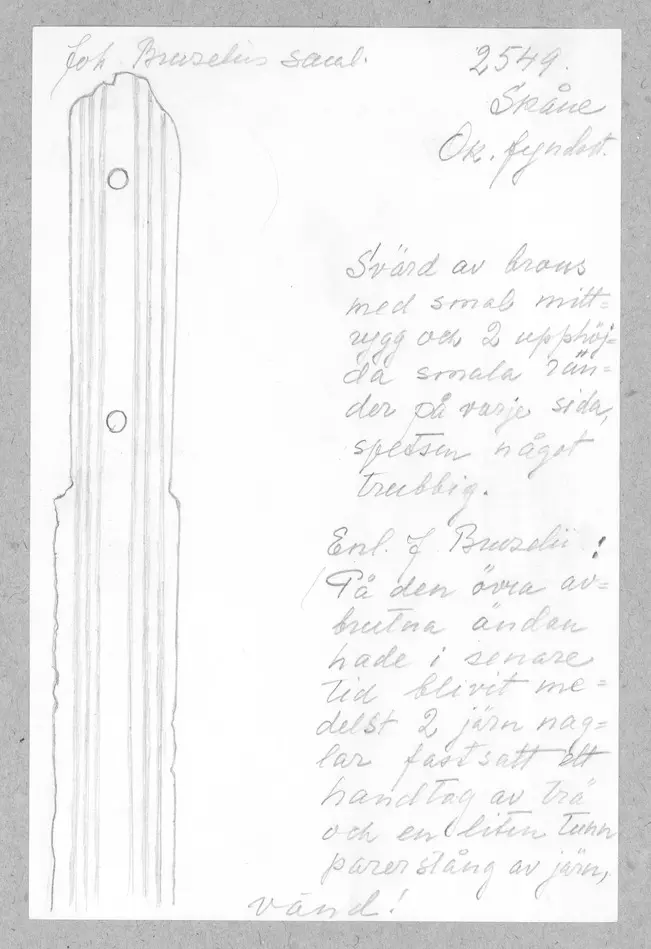 Joh. Bruzelius saml.
2549.
Skåne
Ok. fyndort.
Svärd av brons
med smal mitt=
rygg och 2 upphöj=
da smala rän=
der på varje sida,
spetsen något
trubbig.
Enl. J. Bruzelii :
På den övra av=
brutna ändan
hade i senare
tid blivit me=
delst 2 järn nag=
lar fastsatt ett
handtag av trä
och en liten tunn
parerstång av järn,
vänd!